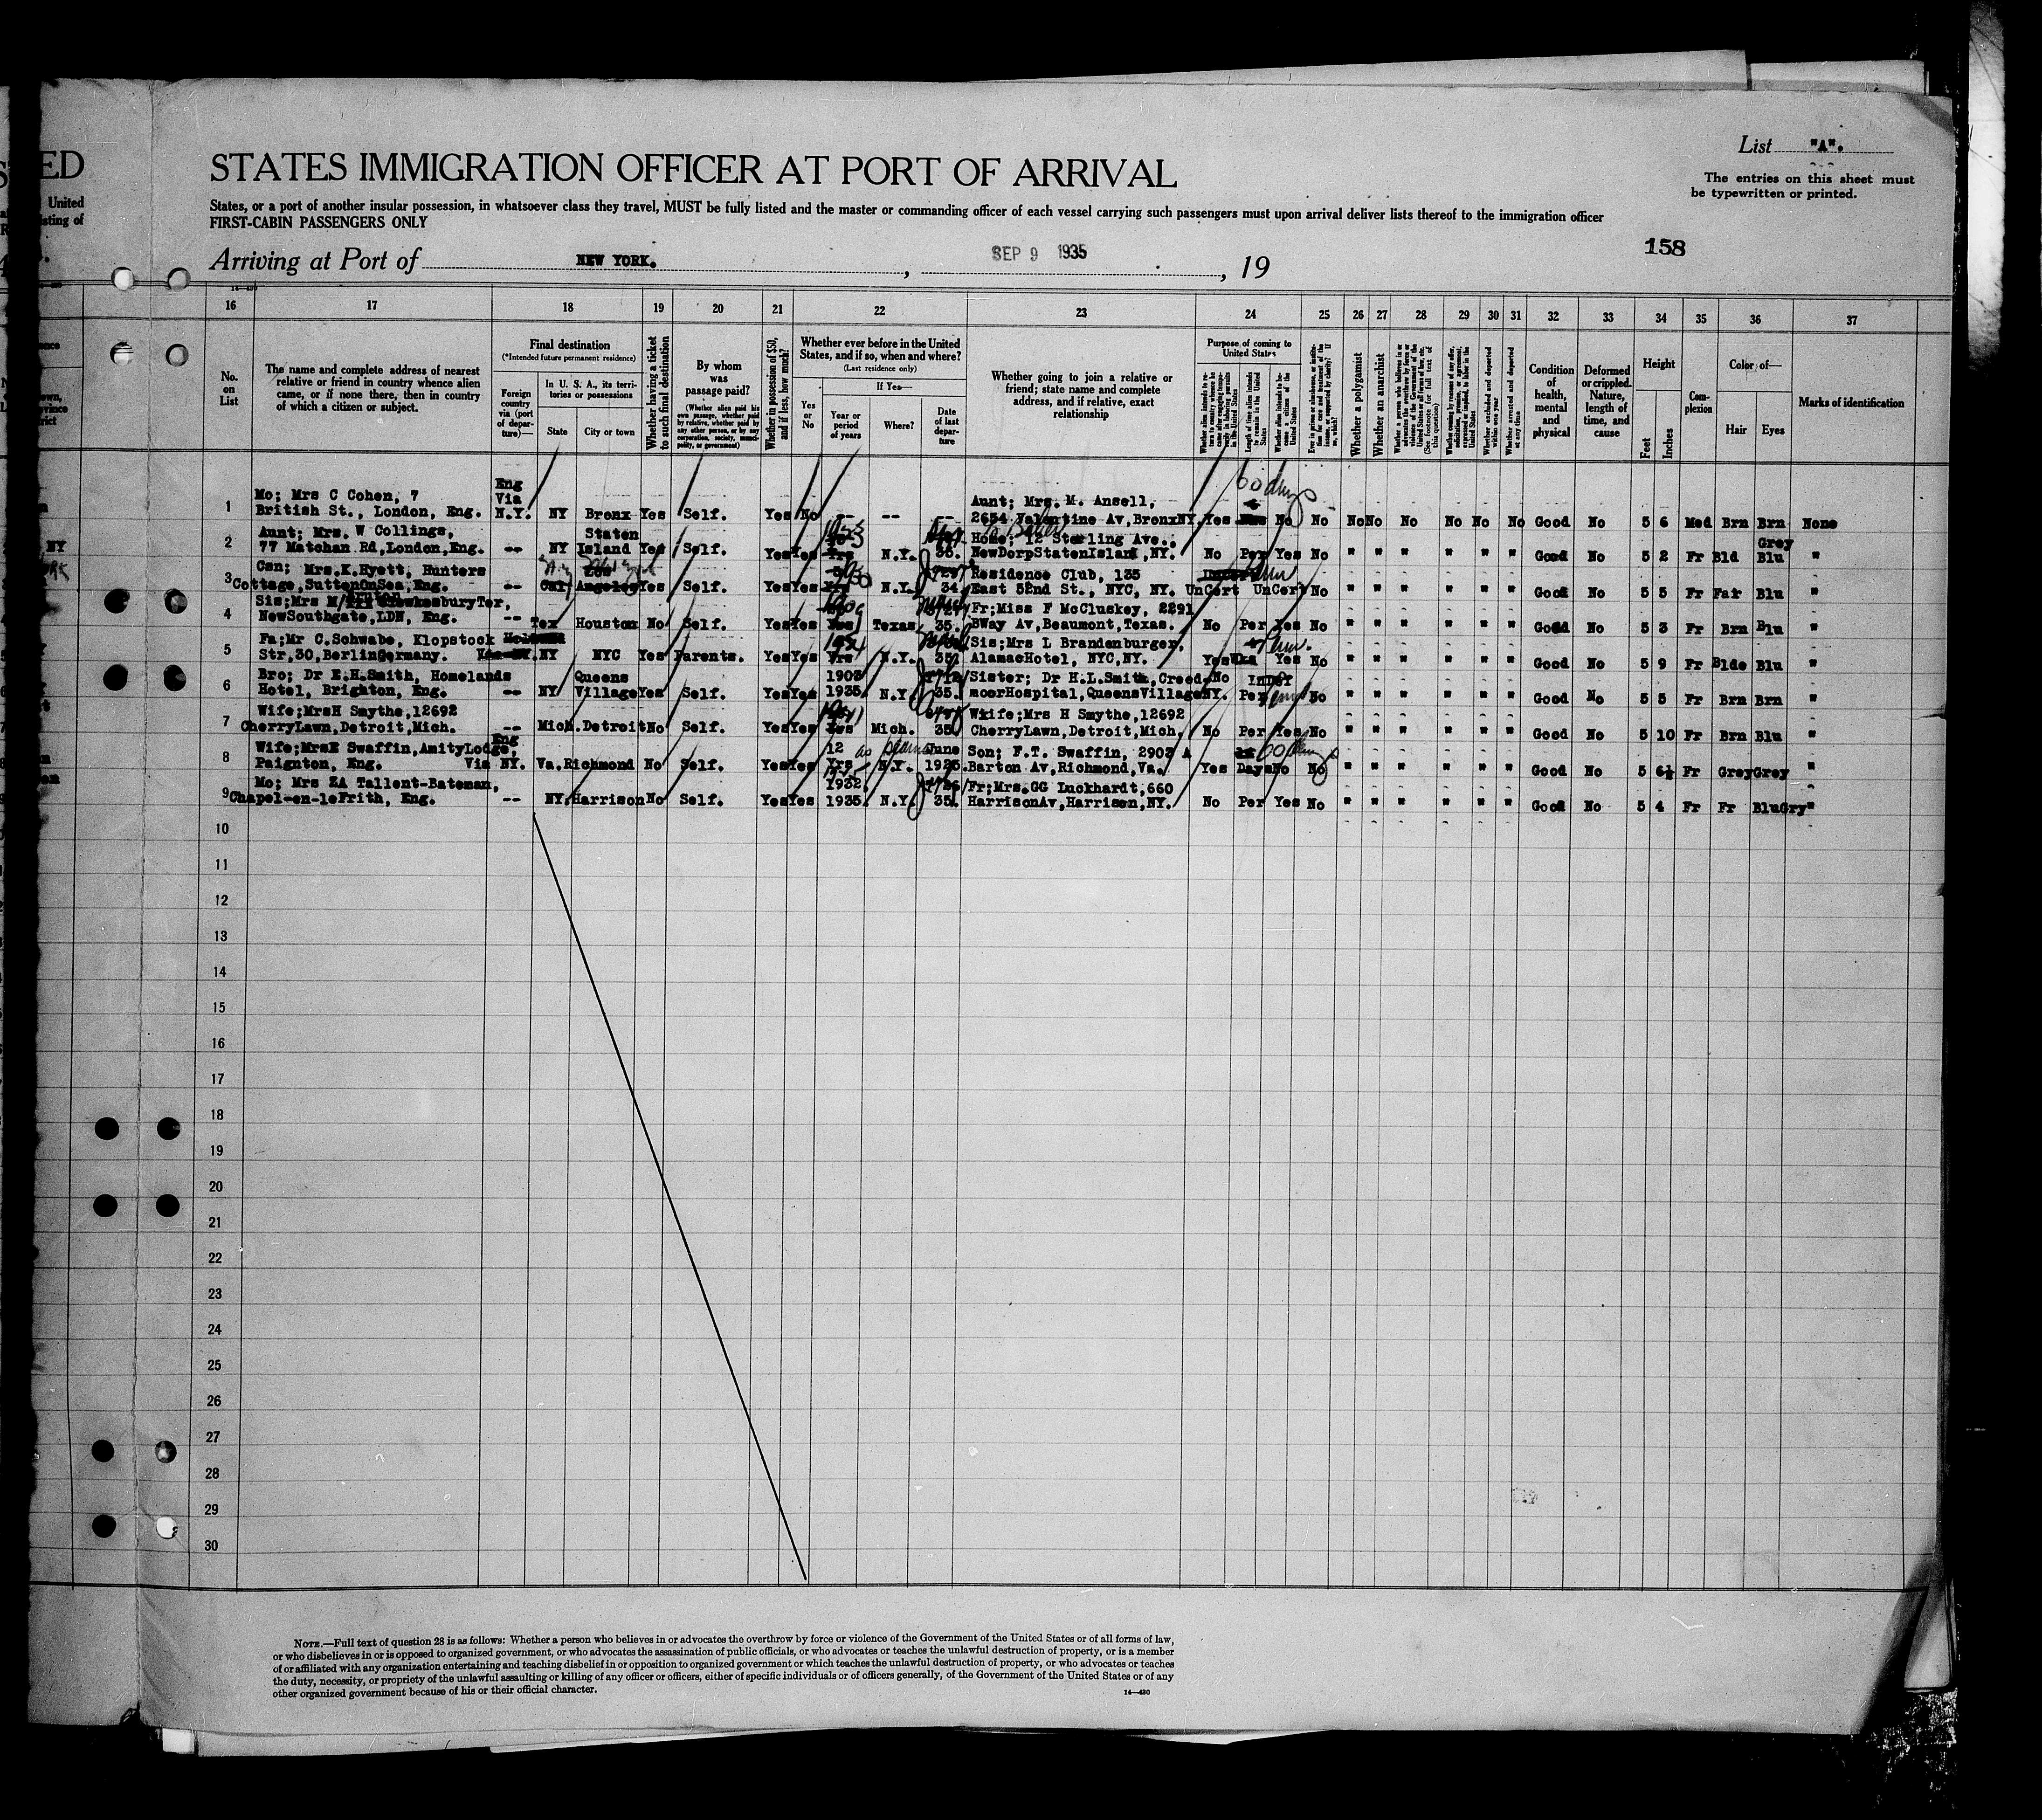 ED
United
sting of
STATES IMMIGRATION OFFICER AT PORT OF ARRIVAL
List "A".
The entries on this sheet must
be typewritten or printed.
States, or a port of another insular possession, in whatsoever class they travel, MUST be fully listed and the master or commanding officer of each vessel carrying such passengers must upon arrival deliver lists thereof to the immigration officer
FIRST-CABIN PASSENGERS ONLY
Arriving at Port of NEW YORK. , SEP 9 1935 , 19
158
16 17 18 19 20 21 22 23 24 25 26 27 28 29 30 31 32 33 34 35 36 37
No.
on
List
The name and complete address of nearest
relative or friend in country whence alien
came, or if none there, then in country
of which a citizen or subject.
Final destination
(*Intended future permanent residence)
Foreign
country
via (port
of depar-
ture)—
In U. S. A., its terri-
tories or possessions
State City or town
Whether having a ticket
to such final destination
By whom
was
passage paid?
(Whether alien paid his
own passage, whether paid
by relative, whether paid by
any other person, or by any
corporation, society, munici-
pality, or government)
Whether in possession of $50,
and if less, how much?
Whether ever before in the United
States, and if so, when and where?
(Last residence only)
Yes
or
No
If Yes—
Year or
period
of years
Where?
Date
of last
depar-
ture
Whether going to join a relative or
friend; state name and complete
address, and if relative, exact
relationship
Purpose of coming to
United States
Length of time alien intends
to remain in the United
States
Whether alien intends to be-
come a citizen of the
United States
Whether a polygamist
Whether an anarchist
Condition
of
health,
mental
and
physical
Deformed
or crippled.
Nature,
length of
time, and
cause
Height
Feet Inches
Com-
plexion
Color of—
Hair Eyes
Marks of identification
1 Mo; Mrs C Cohen, 7
British St., London, Eng. Eng Via N.Y. NY Bronx Yes Self. Yes No -- -- -- Aunt; Mrs. M. Ansell,
2634 Valentine Av, Bronx NY. Yes 60 days No No No No No No No No Good No 5 6 Med Brn Brn None
2 Aunt; Mrs. W Collings,
77 Matchan Rd, London, Eng. -- NY Staten Island Yes Self. Yes Yes N.Y. 35. Home; 12 Sterling Ave.,
NewDorpStatenIsland, NY. No Per Yes No " " " " " " Good No 5 2 Fr Bld Grey Blu "
3 Csn; Mrs.K.Hyett, Hunters
Cottage, SuttonOnSea, Eng. -- Cal Los Angeles Yes Self. Yes Yes N.Y. 34. Residence Club, 135
East 52nd St., NYC, NY. UnCert UnCert No " " " " " " Good No 5 5 Fr Fair Blu "
4 Sis;Mrs M TewkesburyTer,
NewSouthgate, LDN, Eng. -- Tex Houston No Self. Yes Yes Texas 35. Fr;Miss F McCluskey, 2291
BWay Av, Beaumont, Texas. No Per Yes No " " " " " " Good No 5 3 Fr Brn Blu "
5 Fa;Mr C.Schwabe, Klopstock
Str, 30, BerlinGermany. NY NYC Yes Parents. Yes Yes N.Y. 35. Sis;Mrs L Brandenburger,
AlamacHotel, NYC, NY. Yes Yes No " " " " " " Good No 5 9 Fr Blde Blu "
6 Bro; Dr E.H.Smith, Homelands
Hotel, Brighton, Eng. -- NY Queens Village Yes Self. Yes Yes 1903 1935 N.Y. 35. Sister; Dr H.L.Smith, Creed
moorHospital, QueensVillage NY. No Per No " " " " " " Good No 5 5 Fr Brn Brn "
7 Wife;MrsH Smythe, 12692
CherryLawn, Detroit, Mich. -- Mich. Detroit No Self. Yes Yes Mich. 35. Wife;Mrs H Smythe, 12692
CherryLawn, Detroit, Mich. No Per Yes No " " " " " " Good No 5 10 Fr Brn Blu "
8 Wife;MrsE Swaffin, AmityLodge,
Paignton, Eng. Eng Via NY. Va. Richmond No Self. Yes Yes 12 Yrs N.Y. June 1925. Son; F.T. Swaffin, 2903 A
Barton Av, Richmond, Va. Yes Days No No " " " " " " Good No 5 6½ Fr Grey Grey "
9 Mo; Mrs EA Tallent-Bateman,
Chapel-en-leFrith, Eng. -- NY. Harrison No Self. Yes Yes 1932 1935 N.Y. 35. Fr;Mrs.GG Luckhardt, 660
HarrisonAv, Harrison, NY. No Per Yes No " " " " " " Good No 5 4 Fr Fr BluGry "
10
11
12
13
14
15
16
17
18
19
20
21
22
23
24
25
26
27
28
29
30
NOTE.—Full text of question 28 is as follows: Whether a person who believes in or advocates the overthrow by force or violence of the Government of the United States or of all forms of law,
or who disbelieves in or is opposed to organized government, or who advocates the assassination of public officials, or who advocates or teaches the unlawful destruction of property, or is a member
of or affiliated with any organization entertaining and teaching disbelief in or opposition to organized government or which teaches the unlawful destruction of property, or who advocates or teaches
the duty, necessity, or propriety of the unlawful assaulting or killing of any officer or officers, either of specific individuals or of officers generally, of the Government of the United States or of any
other organized government because of his or their official character.
14—430